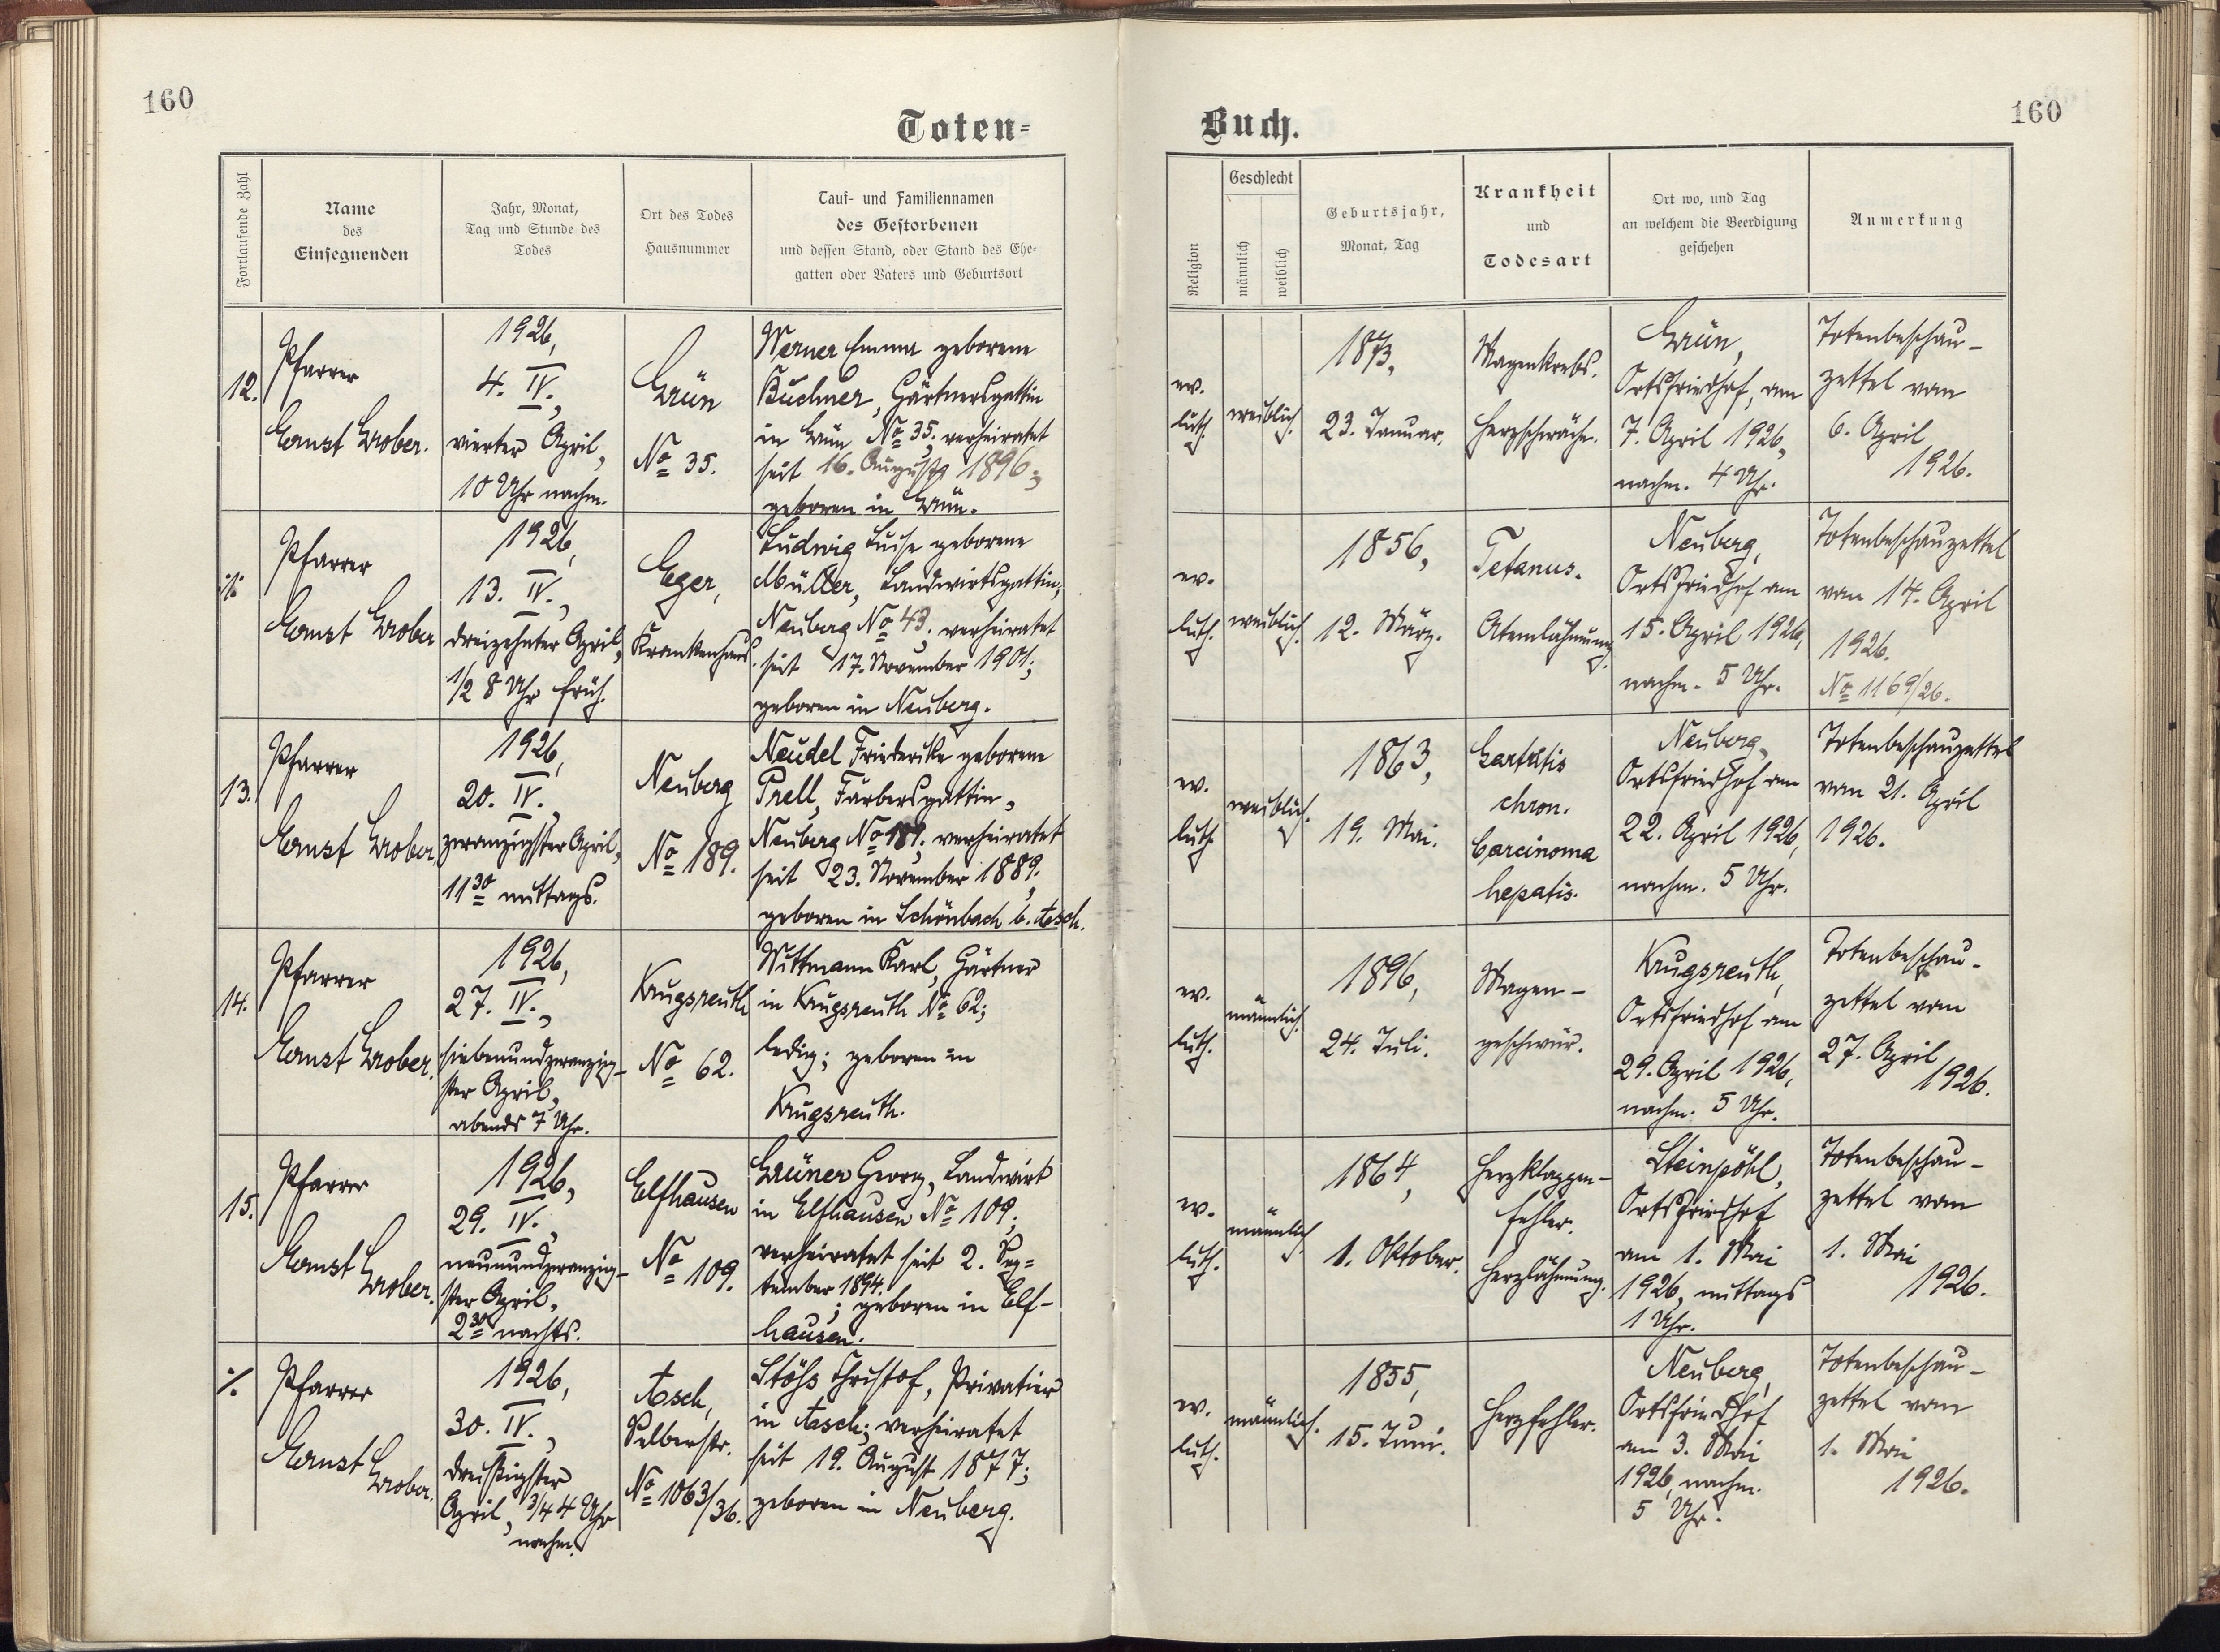 160
Toten=
Fortlaufende Zahl
Name
des
Einsegnenden
Jahr, Monat,
Tag und Stunde des
Todes
Ort des Todes
Hausnummer
Tauf- und Familiennamen
des Gestorbenen
und dessen Stand, oder Stand des Ehe-
gatten oder Vaters und Geburtsort
12.
Pfarrer
Ernst Grober.
1926,
4. IV.,
vierter April,
10 Uhr nachm.
Grün
No 35.
Werner Emma geborene
Buchner, Gärtnersgattin
in Grün No 35; verheiratet
seit 16. August 1896;
geboren in Grün.
·/·
Pfarrer
Ernst Grober
1926,
13. IV.,
dreizehnter April,
1/2 8 Uhr früh.
Eger,
Krankenhaus.
Ludwig Luise geborene
Müller, Landwirtsgattin,
Neuberg No 43; verheiratet
seit 17. November 1901;
geboren in Neuberg.
13.
Pfarrer
Ernst Grober.
1926,
20. IV.,
zwanzigster April,
11 30 mittags.
Neuberg
No 189.
Neudel Friederike geborene
Prell, Färbersgattin,
Neuberg No 189; verheiratet
seit 23. November 1889;
geboren in Schönbach b. Asch.
14.
Pfarrer
Ernst Grober.
1926,
27. IV.,
siebenundzwanzig-
ster April,
abends 7 Uhr.
Krugsreuth
No 62.
Wittmann Karl, Gärtner
in Krugsreuth No 62;
ledig; geboren in
Krugsreuth.
15.
Pfarrer
Ernst
Grober.
1926,
29. IV.,
neunundzwanzig-
ster April,
2 30 nachts.
Elfhausen
No 109.
Grüner Georg, Landwirt
in Elfhausen No 109;
verheiratet seit 2. Sep=
tember 1894.
; geboren in Elf-
hausen.
·/.
Pfarrer
Ernst
Grober.
1926,
30. IV.,
dreißigster
April, 3/4 4 Uhr
nachm.
Asch,
Selberstr.
No 1063/
36.
Stöß Christof, Privatier
in Asch; verheiratet
seit 19. August 1877;
geboren in Neuberg.
Buch.
160
Religion
Geschlecht
männlich
weiblich
Geburtsjahr,
Monat, Tag
Krankheit
und
Todesart
Ort wo, und Tag
an welchem die Beerdigung
geschehen
Anmerkung
ev.
luth.
weiblich.
1873,
23. Januar.
Magenkrebs.
Herzschwäche.
Grün,
Ortsfriedhof, am
7. April 1926,
nachm. 4 Uhr.
Totenbeschau-
zettel vom
6. April
1926.
ev.
luth.
weiblich.
1856,
12. März.
Tetanus.
Atemlähmung.
Neuberg,
Ortsfriedhof am
15. April 1926,
nachm. 5 Uhr.
Totenbeschauzettel
vom 14. April
1926.
No 1169/26.
ev.
luth.
weiblich.
1863,
19. Mai.
chron.
Carcinoma
hepatis.
Neuberg,
Ortsfriedhof am
22. April 1926,
nachm. 5 Uhr.
Totenbeschauzettel
vom 21. April
1926.
ev.
luth.
männlich.
1896,
24. Juli.
Magen-
geschwür.
Krugsreuth,
Ortsfriedhof am
29. April 1926,
nachm. 5 Uhr.
Totenbeschau-
zettel vom
27. April
1926.
ev.
luth.
männlich.
1864,
1. Oktober.
Herzklappen-
fehler.
Herzlähmung.
Steinpöhl,
Ortsfriedhof
am 1. Mai
1926, mittags
1 Uhr.
Totenbeschau-
zettel vom
1. Mai
1926.
ev.
luth.
männlich.
1855,
15. Juni.
Herzfehler.
Neuberg,
Ortsfriedhof
am 3. Mai
1926, nachm.
5 Uhr.
Totenbeschau-
zettel vom
1. Mai
1926.